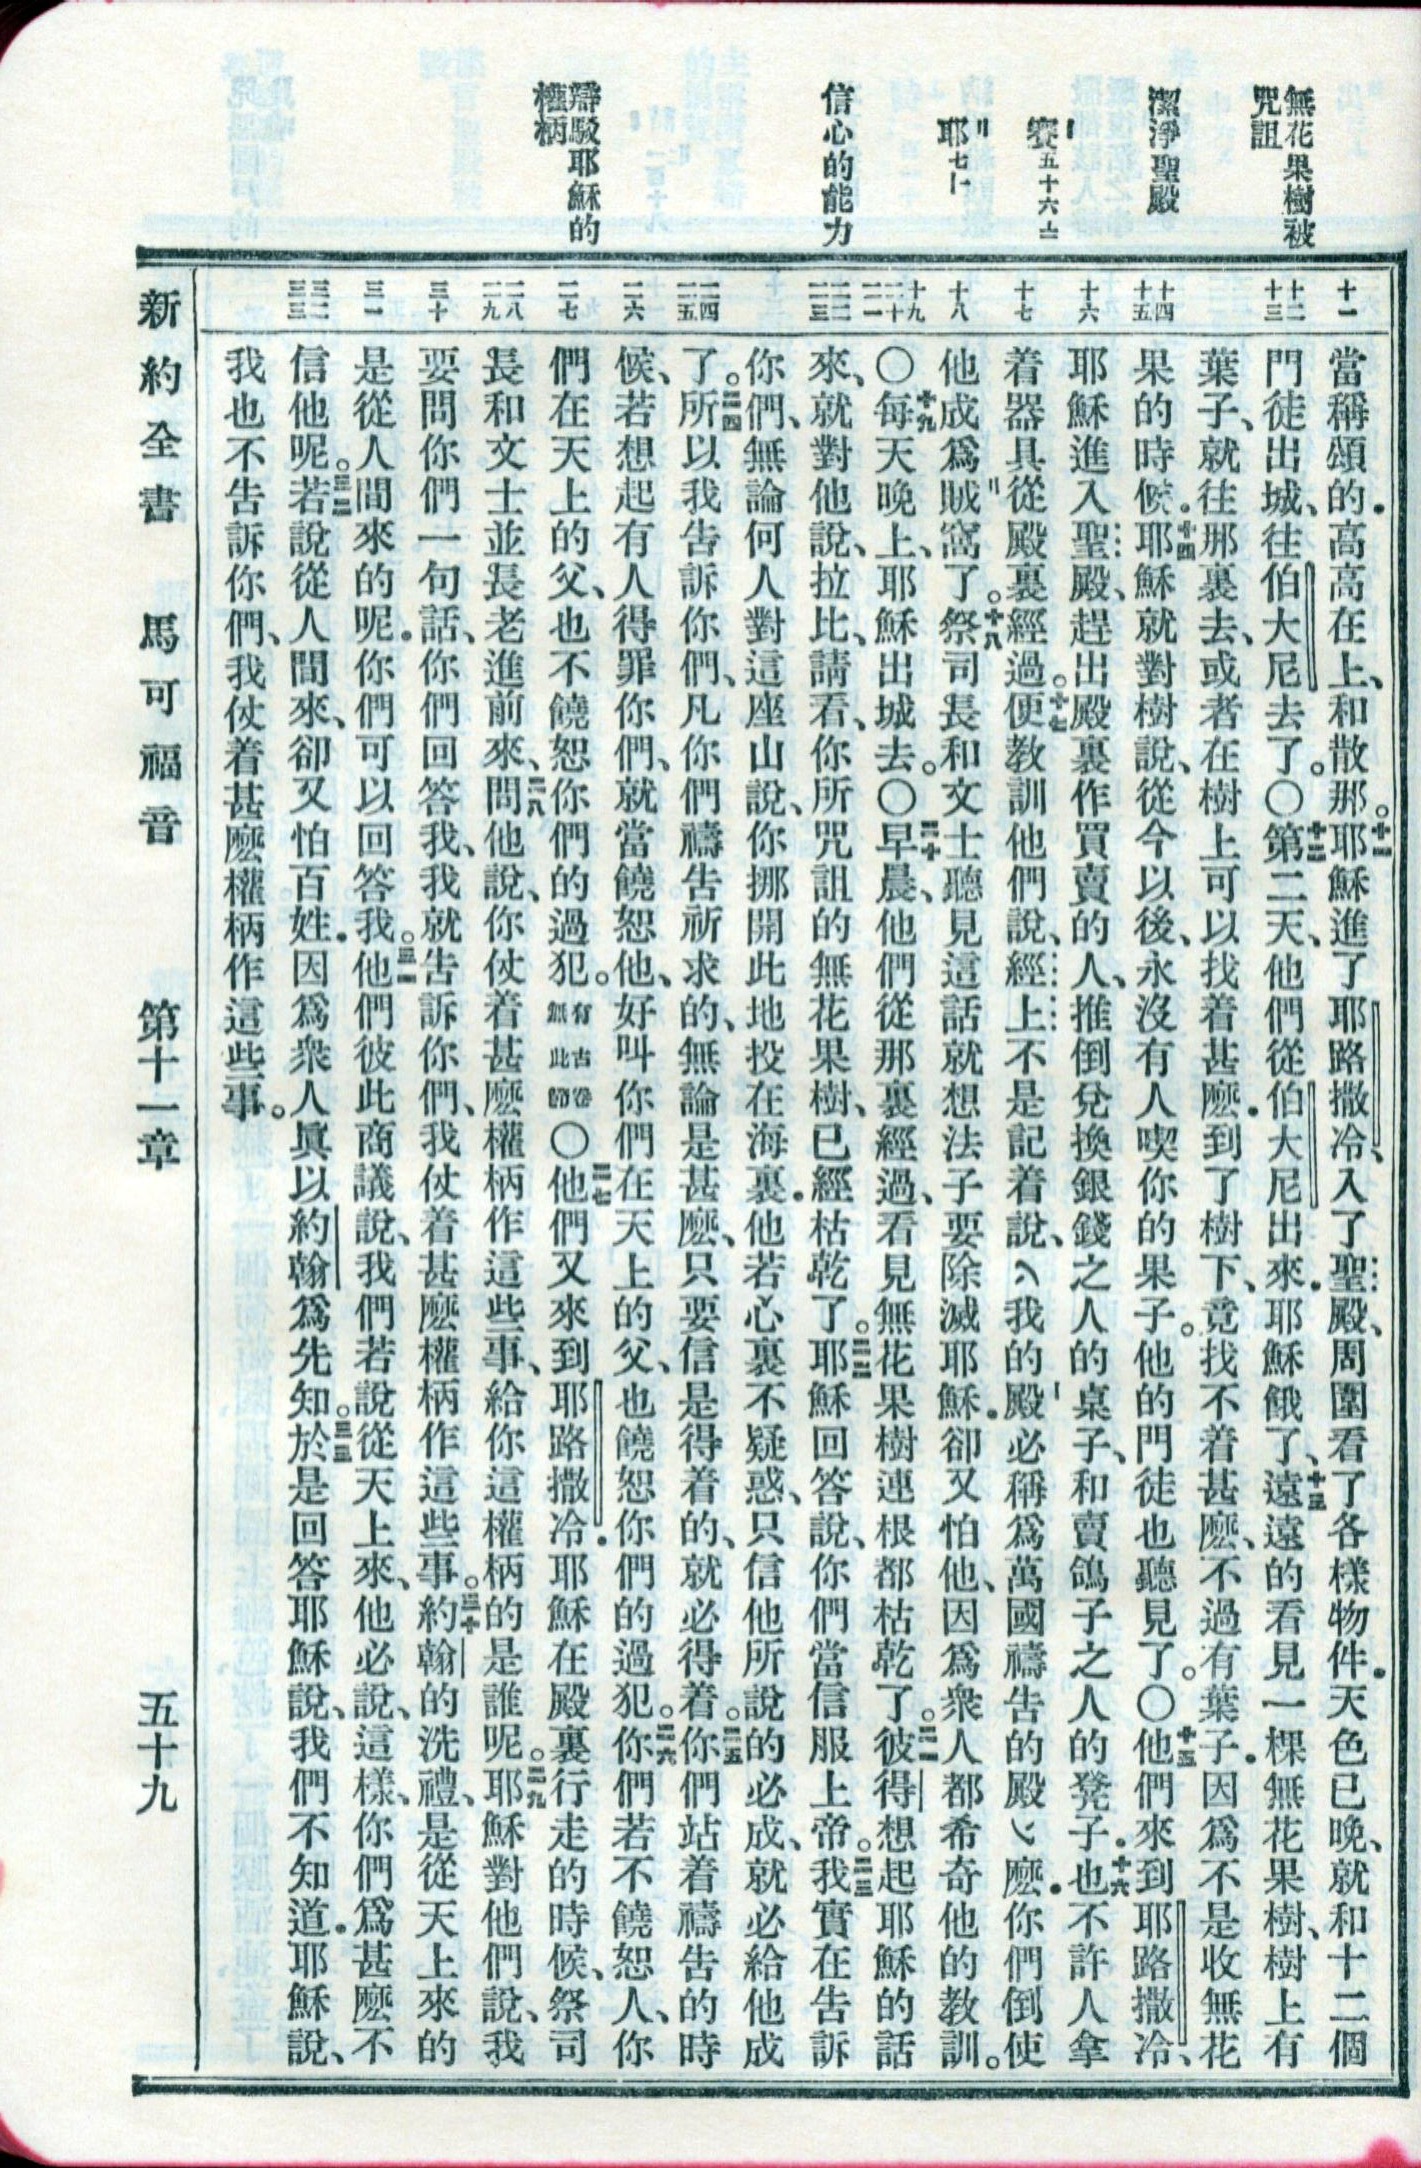 無花果樹被
咒詛
潔淨聖殿
賽五十六
耶七
信心的能力
辯駁耶穌的
權柄
十一
十二
十三
十四
十五
十六
十七
十八
十九
二十
二一
二二
二三
二四
二五
二六
二七
二八
二九
三十
三一
三二
三三
當稱頌的．高高在上、和散那。十一耶穌進了耶路撒冷、入了聖殿、周圍看了各樣物件．天色已晚、就和十二個
門徒出城、往伯大尼去了。〇十二第二天、他們從伯大尼出來．耶穌餓了、十三遠遠的看見一棵無花果樹、樹上有
葉子、就往那裏去、或者在樹上可以找着甚麼．到了樹下、竟找不着甚麼、不過有葉子．因爲不是收無花
果的時候．十四耶穌就對樹說、從今以後、永沒有人喫你的果子。他的門徒也聽見了。〇十五他們來到耶路撒冷、
耶穌進入聖殿、趕出殿裏作買賣的人、推倒兌換銀錢之人的桌子、和賣鴿子之人的凳子．十六也不許人拿
着器具從殿裏經過。十七便教訓他們說、經上不是記着說、我的殿必稱爲萬國禱告的殿麼．你們倒使
他成爲賊窩了。十八祭司長和文士聽見這話就想法子要除滅耶穌．卻又怕他、因爲衆人都希奇他的教訓。
〇十九每天晚上、耶穌出城去。〇二十早晨、他們從那裏經過、看見無花果樹連根都枯乾了。二一彼得想起耶穌的話
來、就對他說、拉比、請看、你所咒詛的無花果樹、已經枯乾了。二二耶穌回答說、你們當信服上帝。二三我實在告訴
你們、無論何人對這座山說、你挪開此地投在海裏．他若心裏不疑惑、只信他所說的必成、就必給他成
了。二四所以我告訴你們、凡你們禱告祈求的、無論是甚麼、只要信是得着的、就必得着。二五你們站着禱告的時
候、若想起有人得罪你們、就當饒恕他、好叫你們在天上的父、也饒恕你們的過犯。二六你們若不饒恕人、你
們在天上的父、也不饒恕你們的過犯。有古卷無此節〇二七他們又來到耶路撒冷．耶穌在殿裏行走的時候、祭司
長和文士並長老進前來、二八問他說、你仗着甚麼權柄作這些事、給你這權柄的是誰呢。二九耶穌對他們說、我
要問你們一句話、你們回答我、我就告訴你們、我仗着甚麼權柄作這些事。三十約翰的洗禮、是從天上來的
是從人間來的呢．你們可以回答我。三一他們彼此商議說、我們若說從天上來、他必說、這樣、你們爲甚麼不
信他呢。三二若說從人間來、卻又怕百姓．因爲衆人眞以約翰爲先知。三三於是回答耶穌說、我們不知道．耶穌說、
我也不告訴你們、我仗着甚麼權柄作這些事。
新約全書 馬可福音 第十一章 五十九